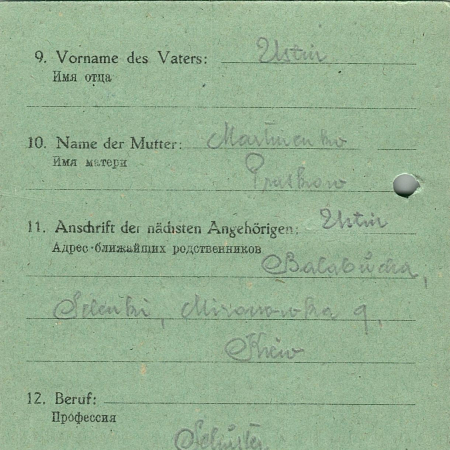 9. Vorname des Vaters: Ustin
Имя отца
10. Name der Mutter: Martinenko
Имя матери
Praskow
11. Anschrift der nächsten Angehörigen: Ustin
Адрес ближайших родственников
Balabucha,
Selenki, Mironowka 9,
Kiew
12. Beruf:
Профессия
Schuster